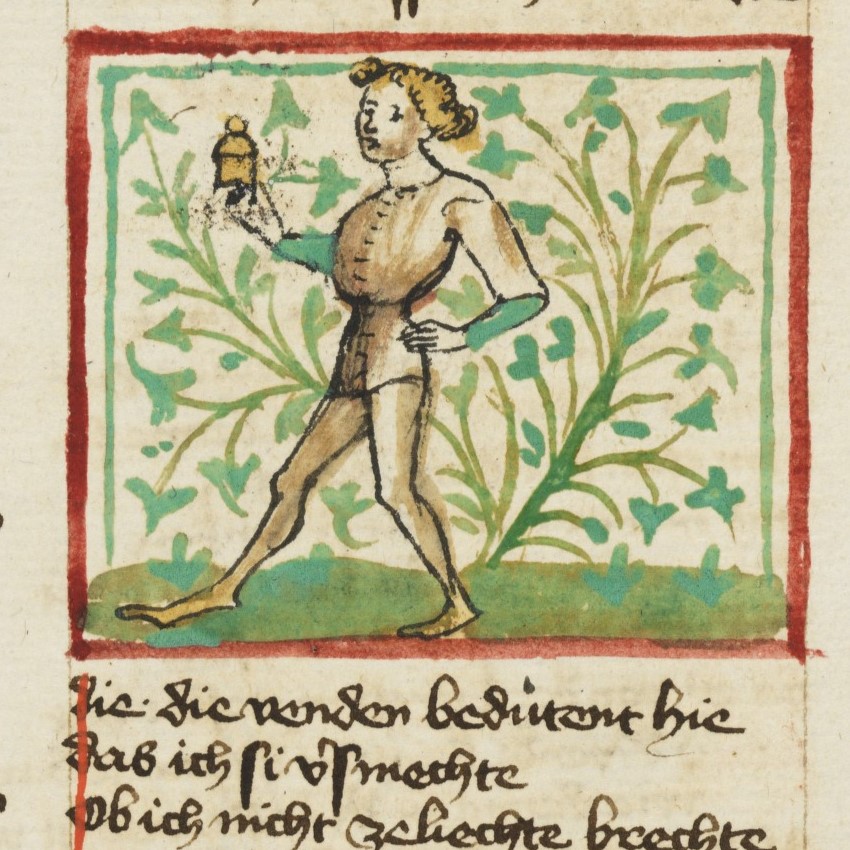 die · die venden bedütent hie
das ich si v'smechte
Ob ich nicht ze liechte brechte